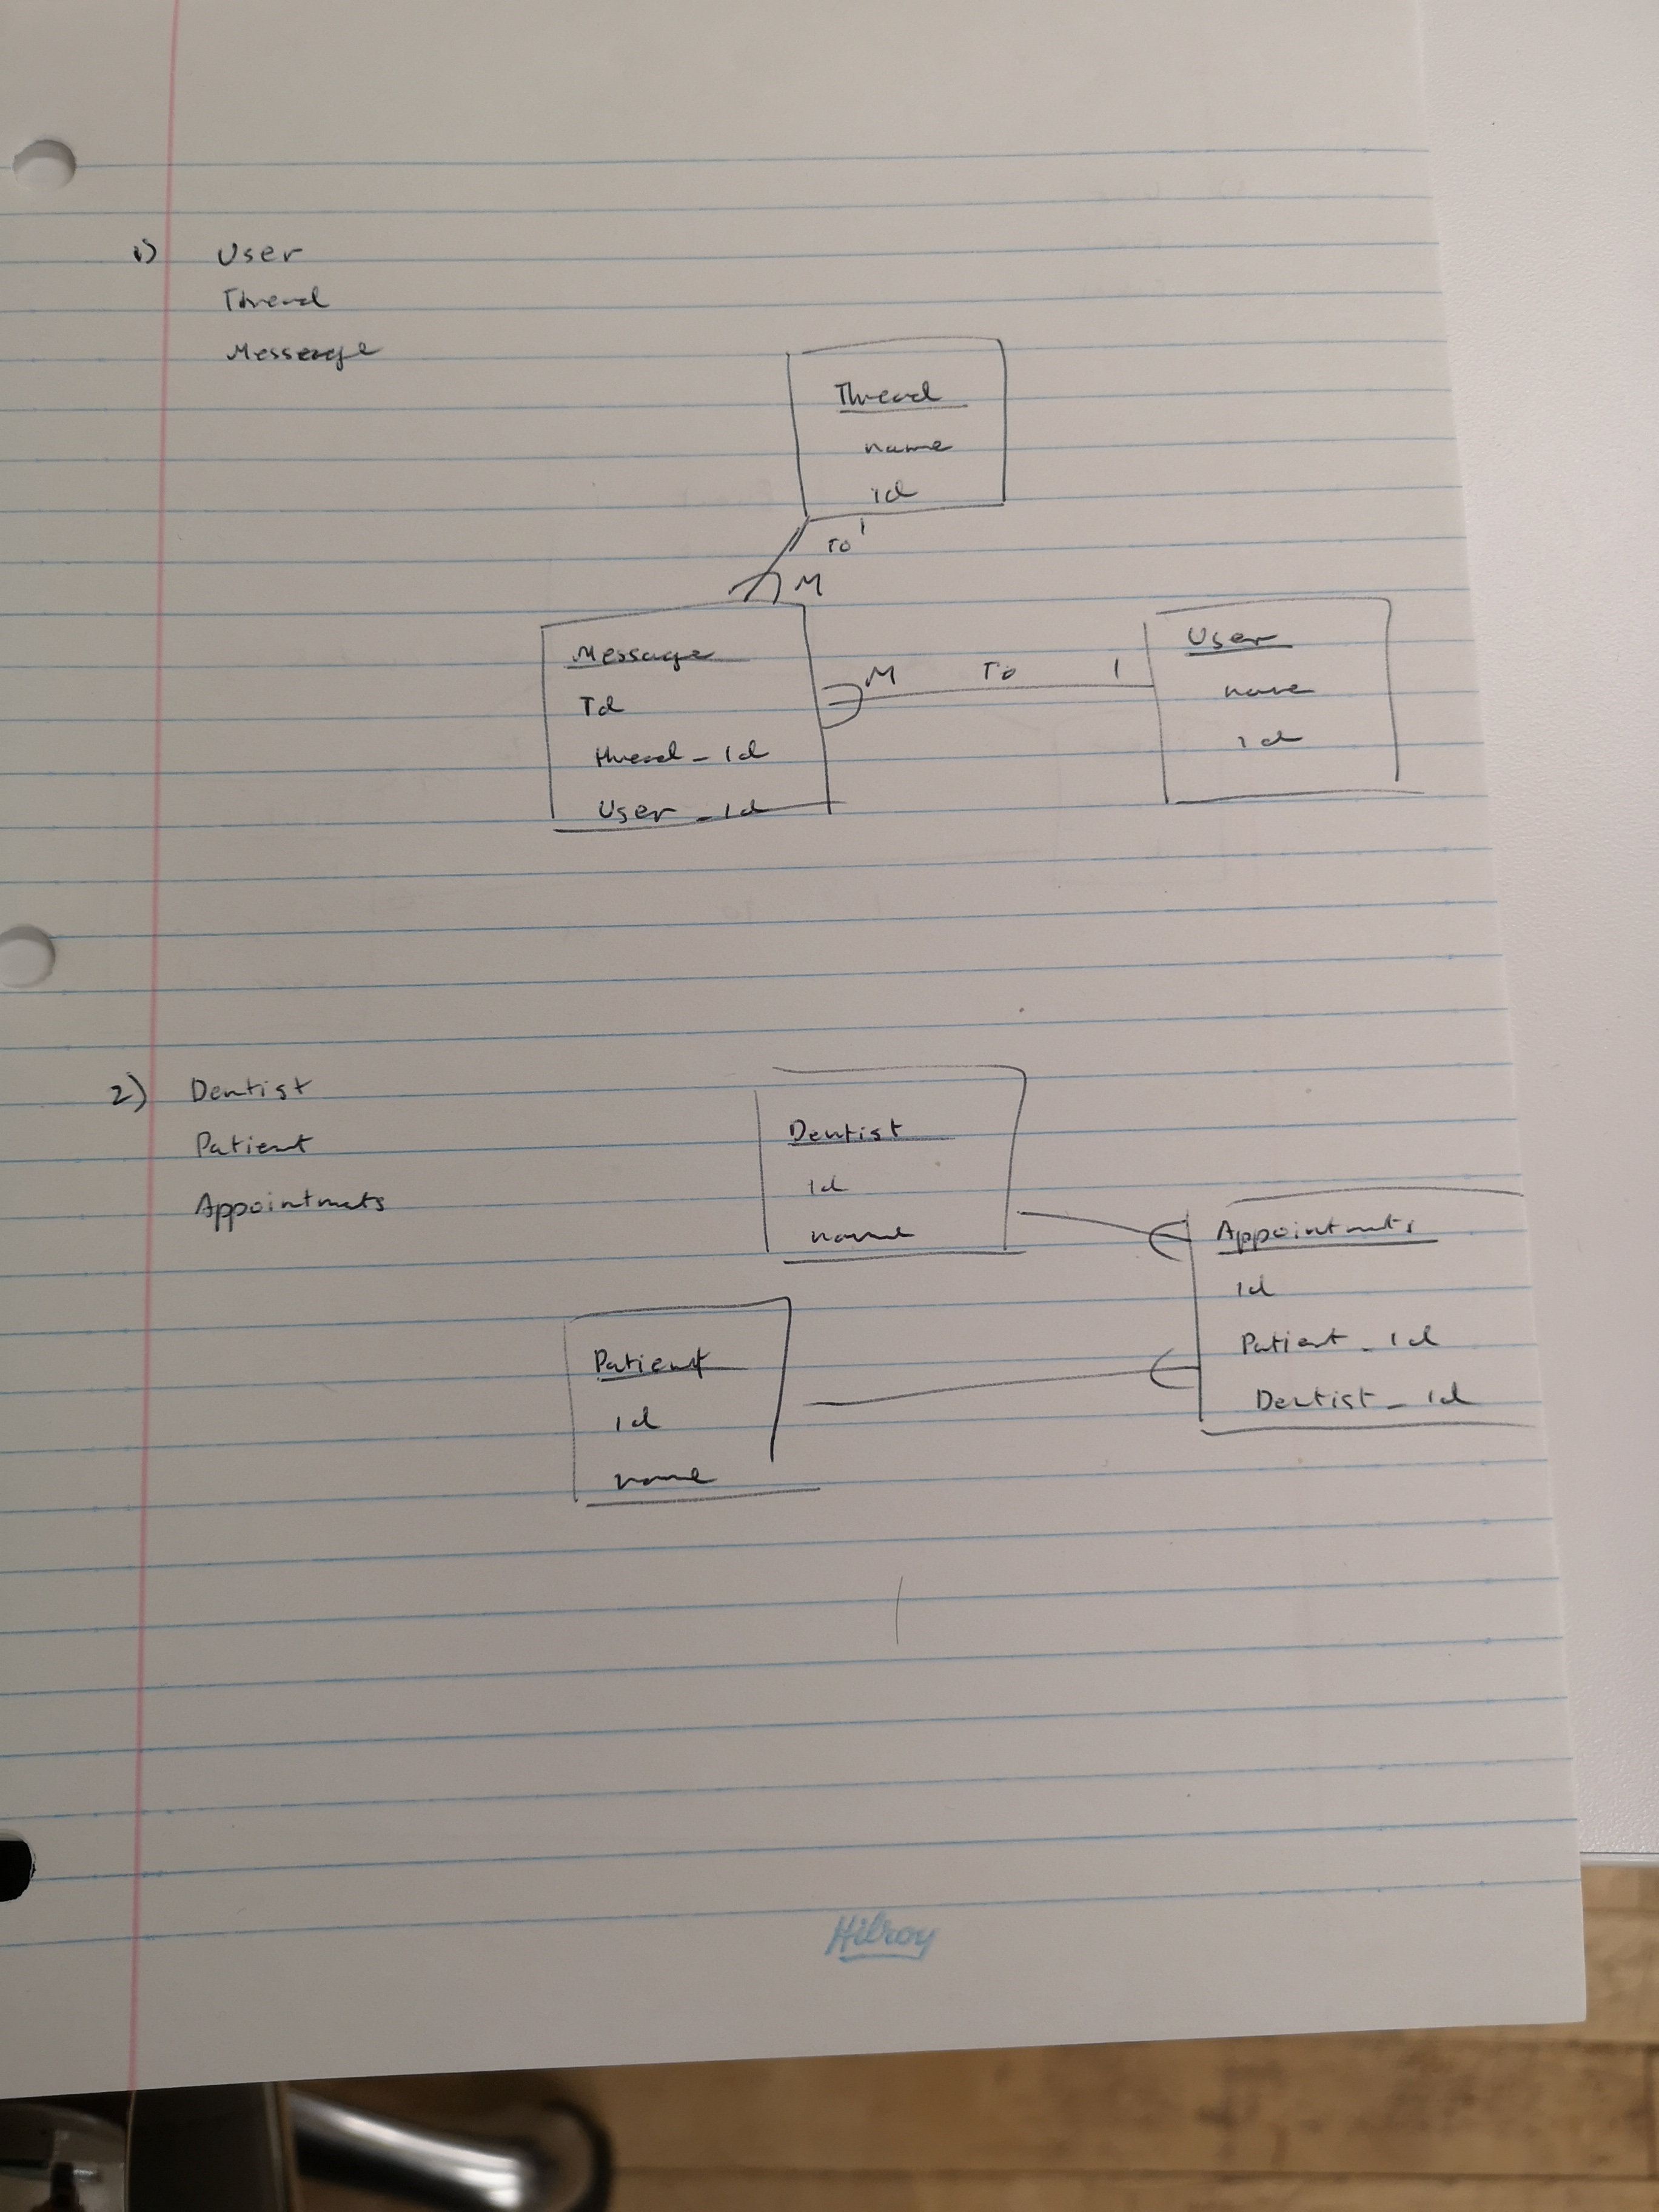 1) User
Thread
Message
Thread
name
id
To 1
M
Message
Id
thread_id
User_id
M To 1
User
name
id
2) Dentist
Patient
Appointmets
Dentist
id
name
Patient
id
name
Appointmnts
id
Patient_id
Dentist_id
Hilroy